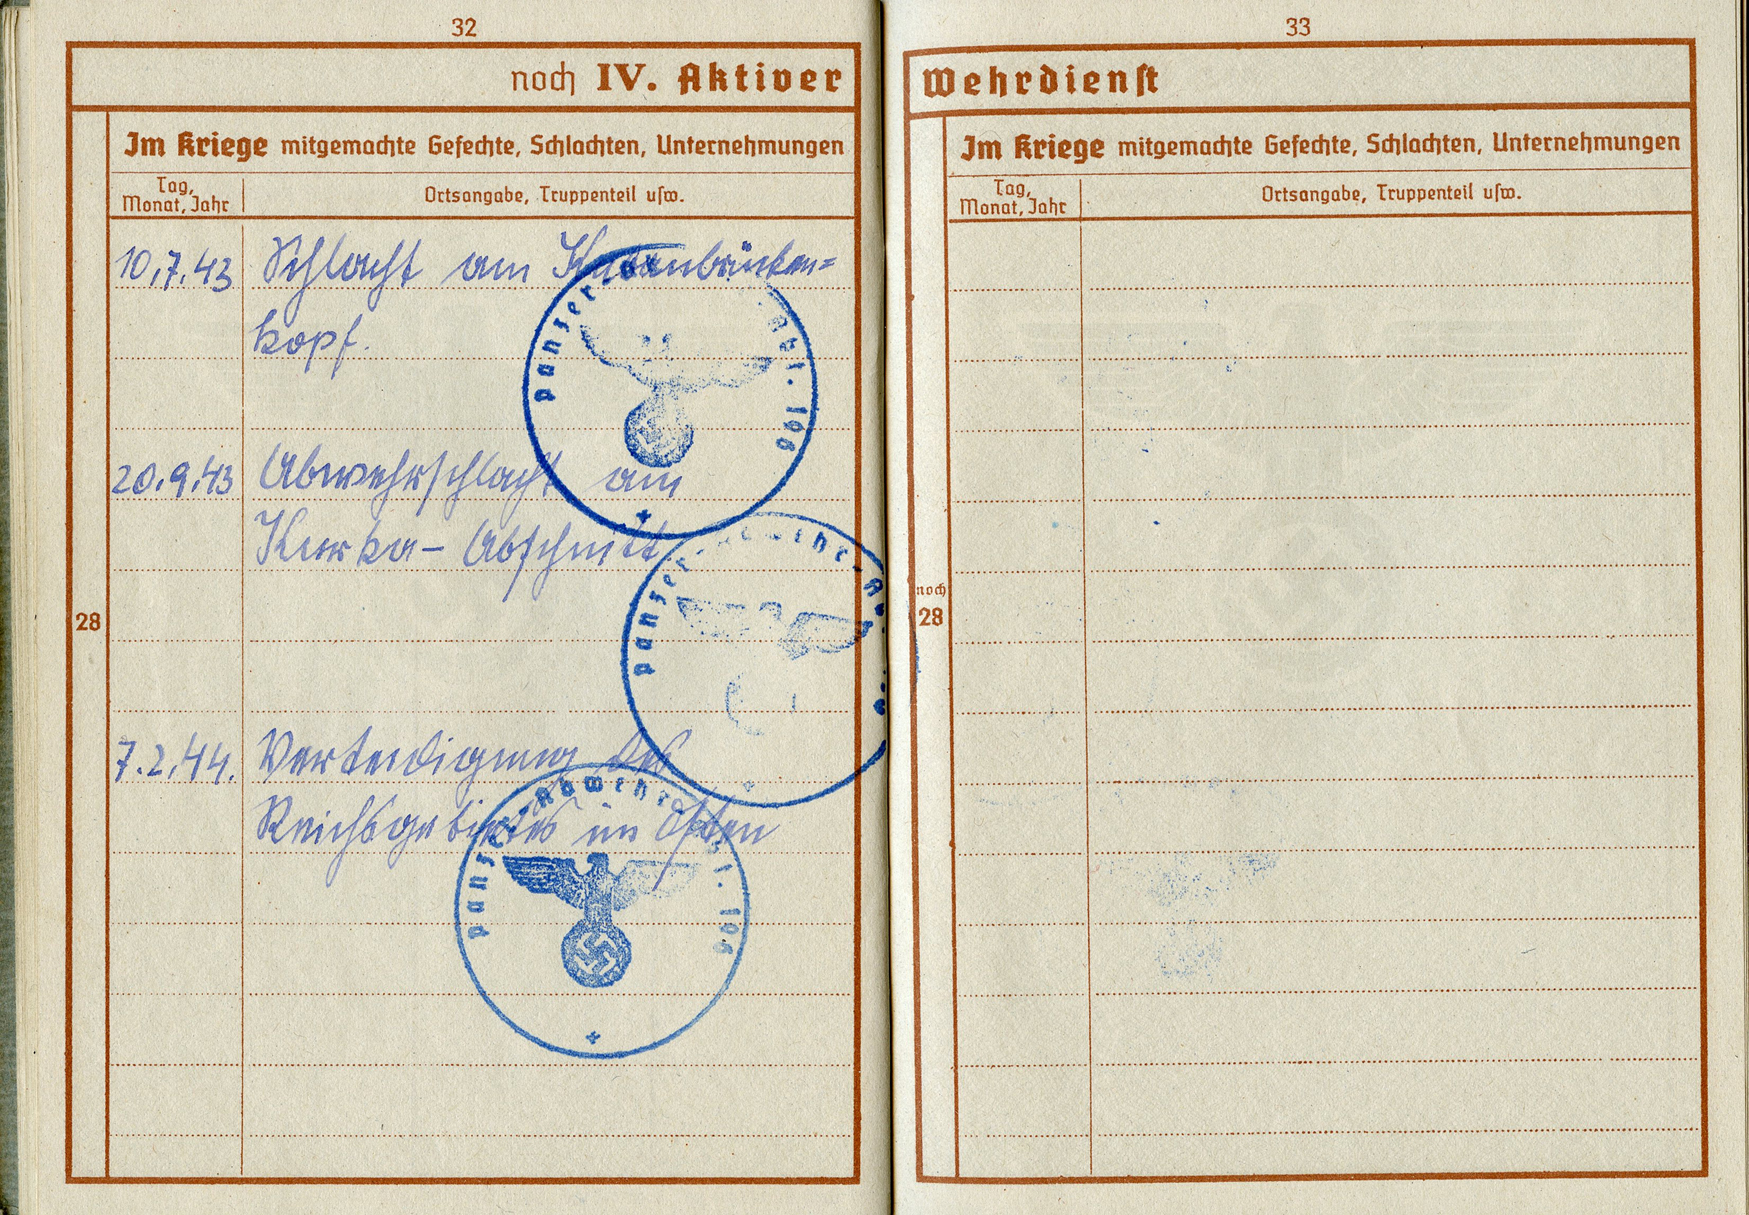 32
noch IV. Aktiver
Im Kriege mitgemachte Gefechte, Schlachten, Unternehmungen
Tag,
Monat, Jahr
Ortsangabe, Truppenteil usw.
10.7.43 Schlacht am Kubanbrücken=
kopf.
20.9.43 Abwehrschlacht am
Abschnitt
28
7.2.44. Verteidigung des
Reichsgebietes im Osten
Panzer- Abt. 198
Panzer-
Panzer-Abwehr
33
Wehrdienst
Im Kriege mitgemachte Gefechte, Schlachten, Unternehmungen
Tag,
Monat, Jahr
Ortsangabe, Truppenteil usw.
noch
28